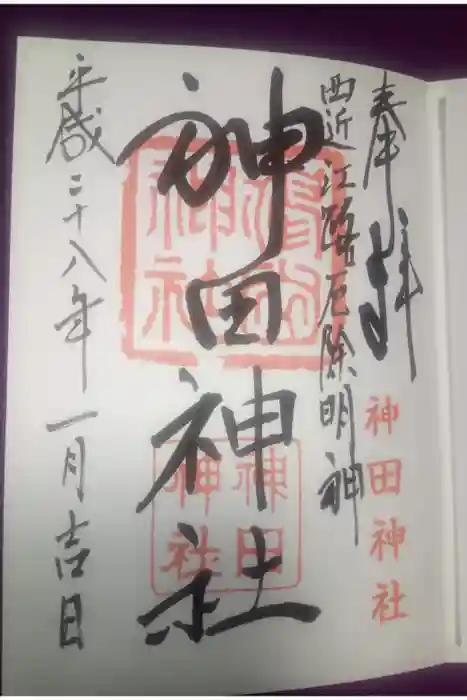 奉拝
神田神社
西近江路厄除明神
神田神社
神田
神社
平成二十八年一月吉日